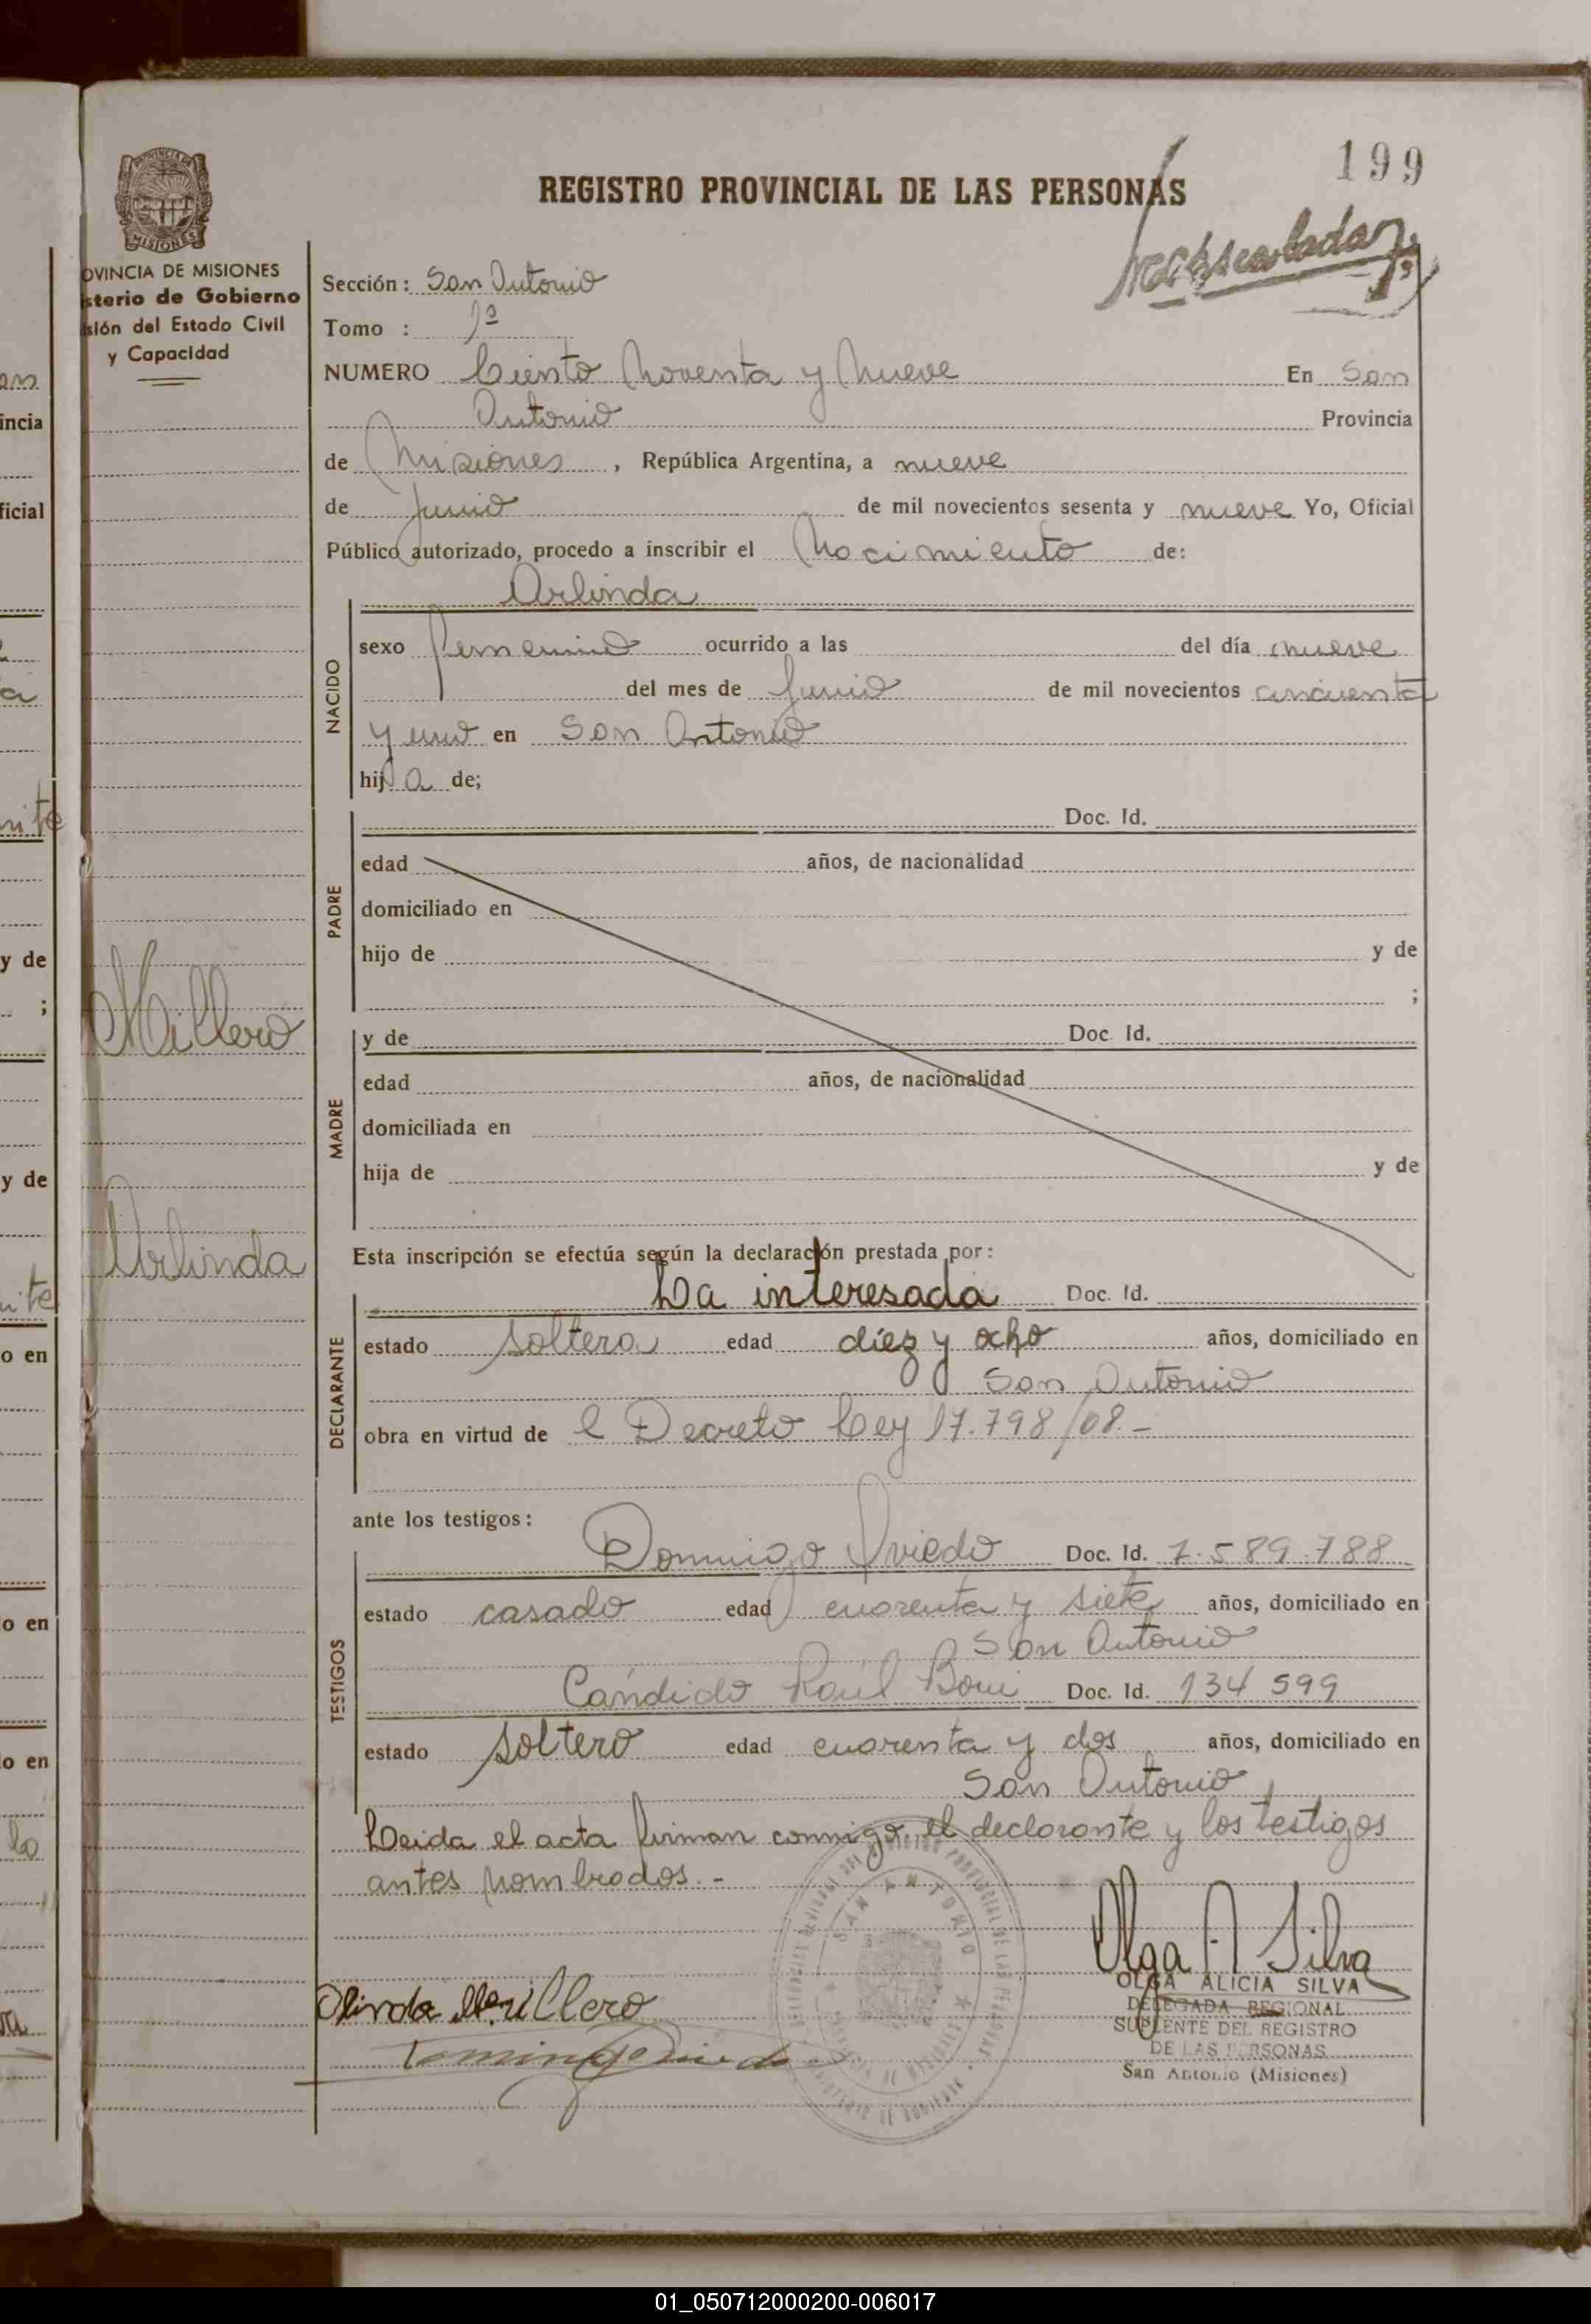 199
REGISTRO PROVINCIAL DE LAS PERSONAS
MISIONES
OVINCIA DE MISIONES
sterio de Gobierno
sión del Estado Civil
y Capacidad
Sección: San Antonio
Tomo : 1º
NUMERO Ciento Noventa y Nueve En San
Antonio Provincia
de Misiones , República Argentina, a nueve
de Junio de mil novecientos sesenta y nueve Yo, Oficial
Público autorizado, procedo a inscribir el Nacimiento de:
Arlinda
NACIDO
sexo femenino ocurrido a las del día nueve
del mes de Junio de mil novecientos cincuenta
y uno en San Antonio
hija de;
PADRE
Doc. Id.
edad años, de nacionalidad
domiciliado en
hijo de y de
;
Millero
MADRE
y de Doc. Id.
edad años, de nacionalidad
domiciliada en
hija de y de
Arlinda
Esta inscripción se efectúa según la declaración prestada por:
DECLARANTE
La interesada Doc. Id.
estado soltera edad diez y ocho años, domiciliado en
San Antonio
obra en virtud de l Decreto Ley 17.798/08.-
ante los testigos:
TESTIGOS
Domingo Oviedo Doc. Id. 7.589.788
estado casado edad cuarenta y siete años, domiciliado en
San Antonio
Cándido Raúl Doc. Id. 134 599
estado soltero edad cuarenta y dos años, domiciliado en
San Antonio
Leida el acta firman conmigo, el declarante y los testigos
antes nombrados.-
SAN ANTONIO
Olga A Silva
OLGA ALICIA SILVA
DELEGADA REGIONAL
SUPLENTE DEL REGISTRO
DE LAS PERSONAS
San Antonio (Misiones)
Olinda Millero
01_050712000200-006017